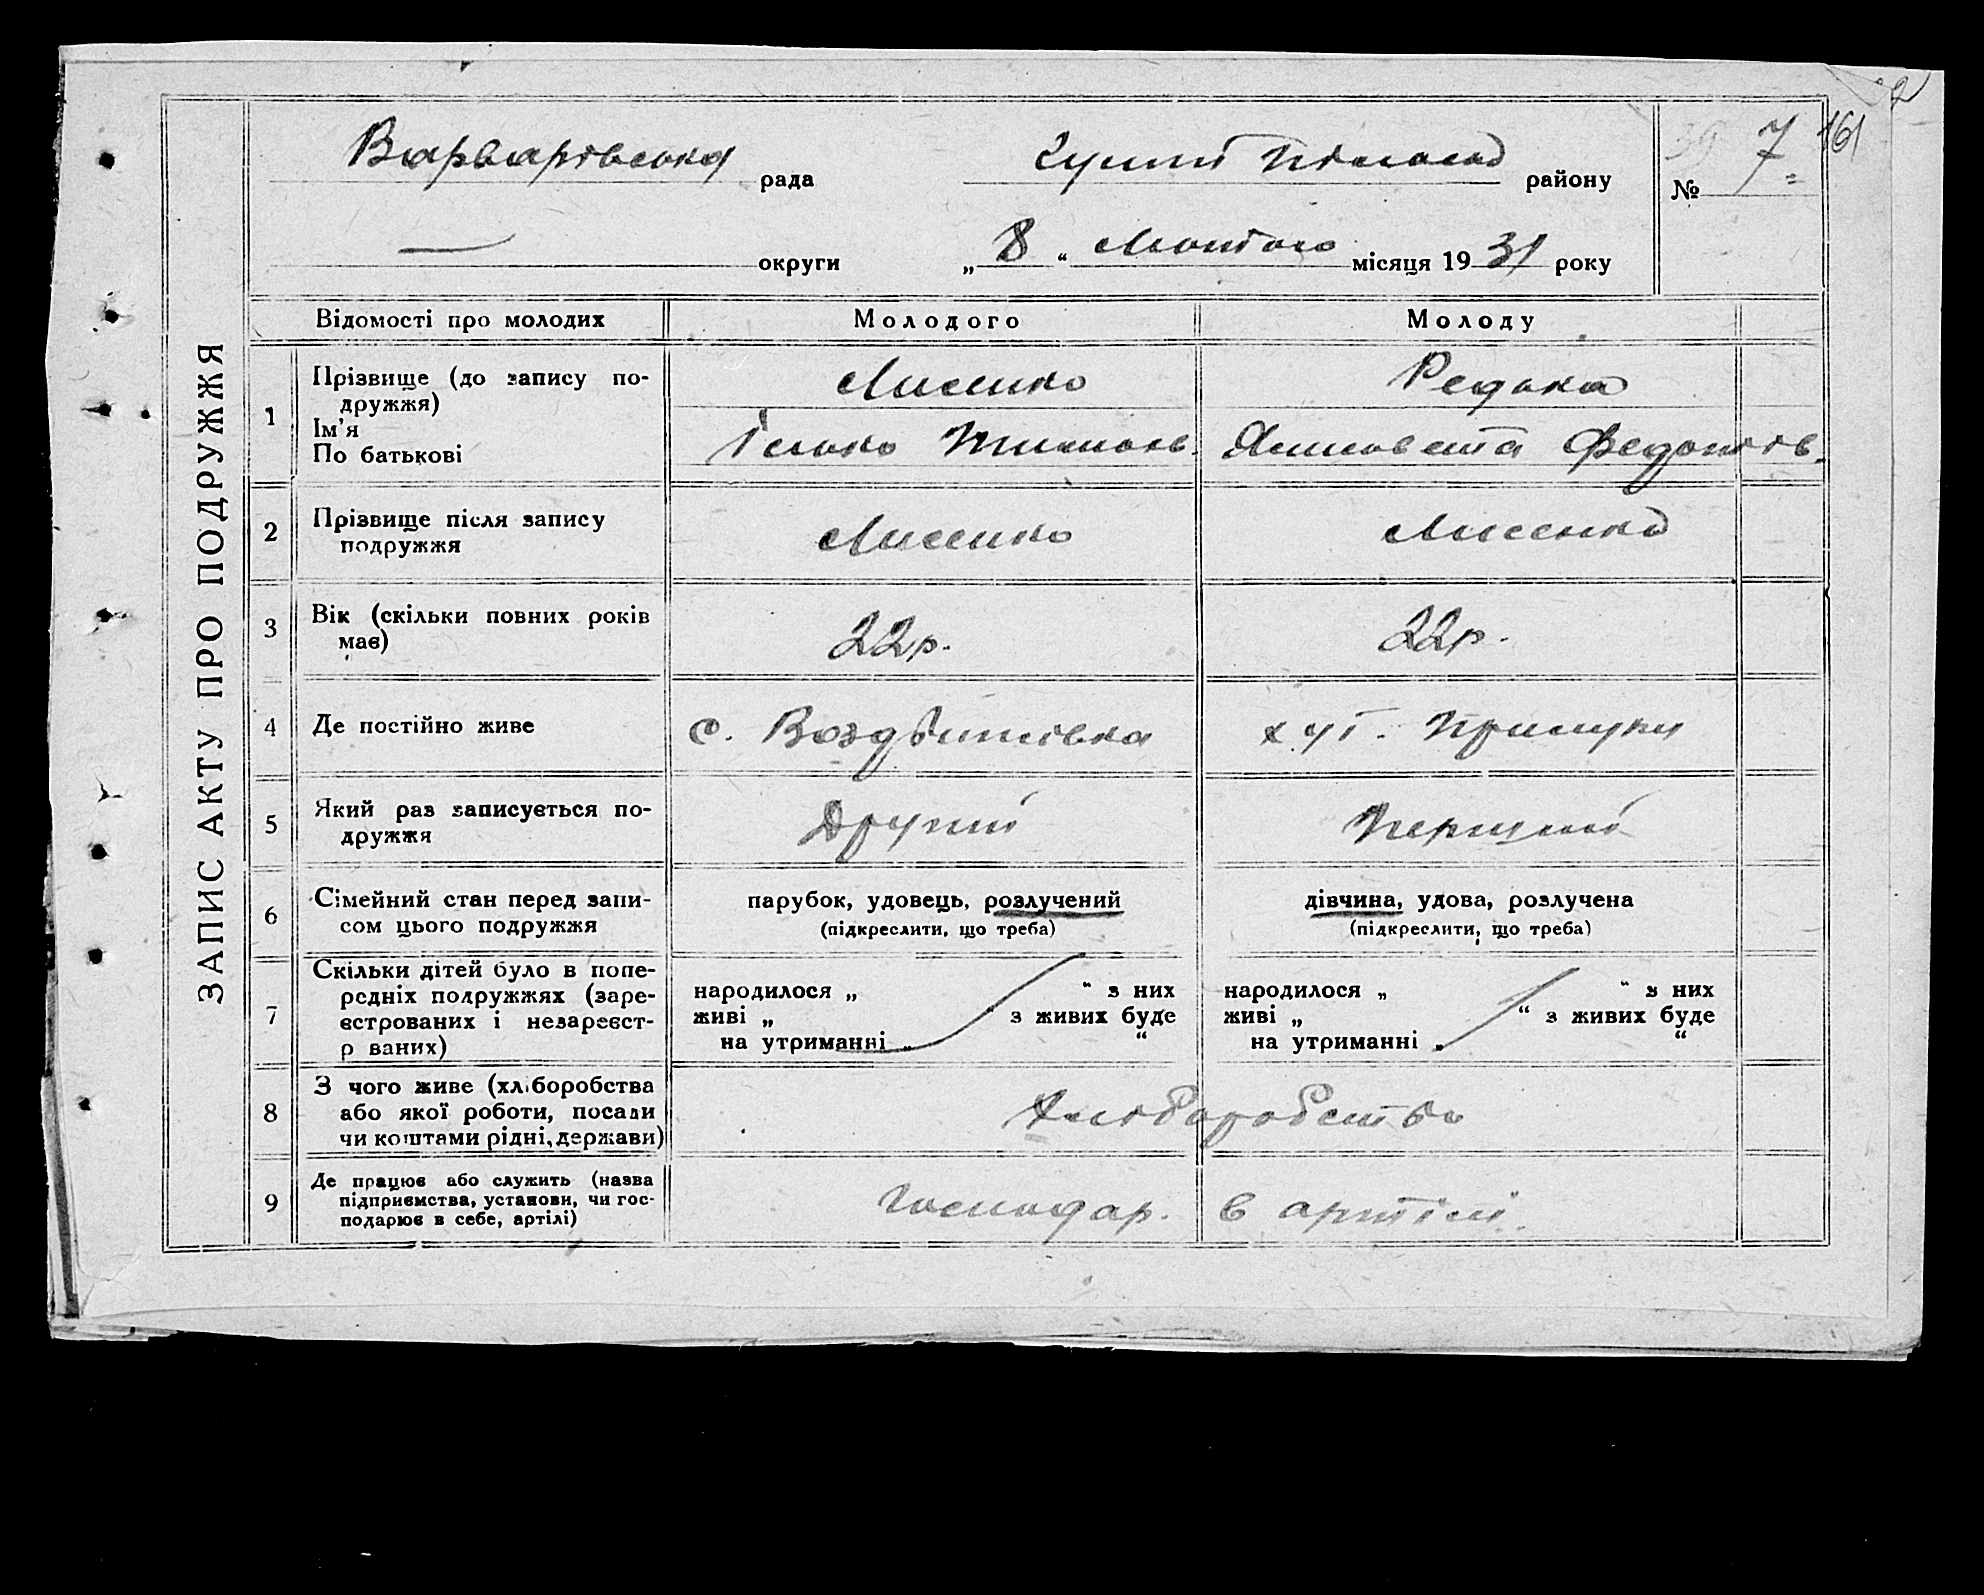 161
Варварівська рада
району
№ 7
округи
„ 8 “ Лютого місяця 19 31 року
ЗАПИС АКТУ ПРО ПОДРУЖЖЯ
Відомості про молодих Молодого Молоду
1 Прізвище (до запису по-
дружжя)
Ім'я
По батькові
Лисенко
Тимофів.
Редька
Федотів.
2 Прізвище після запису
подружжя
Лисенко
Лисенко
3 Вік (скільки повних років
має)
22р.
22р.
4 Де постійно живе
с. Воздвиживка
хут. Прилуки
5 Який раз записується по-
дружжя
Другий
Перший
6 Сімейний стан перед запи-
сом цього подружжя
парубок, удовець, розлучений
(підкреслити, що треба)
дівчина, удова, розлучена
(підкреслити, що треба)
7 Скільки дітей було в попе-
редніх подружжях (заре-
єстрованих і незареєст-
р ваних)
народилося „ “ з них
живі „ “ з живих буде
на утриманні „ “
народилося „ “ з них
живі „ “ з живих буде
на утриманні „ “
8 З чого живе (хліборобства
або якої роботи, посади
чи коштами рідні, держави)
Хліборобство
9 Де працює або служить (назва
підприємства, установи, чи гос-
подарює в себе, артілі)
Господар. в артілі.